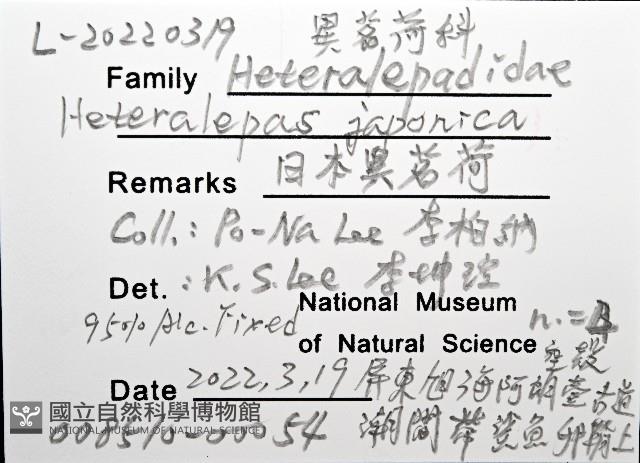 L-20220319 異茗荷科
Family Heteralepadidae
Heteralepas japonica
Remarks 日本異茗荷
Coll.: Po-Na Lee 李柏納
Det.: K.S. Lee 李坤瑄
95% Alc. Fixed National Museum n.=
of Natural Science 空殼
Date 2022,3,19 屏東旭海阿朗壹古道
國立自然科學博物館
NATIONAL MUSEUM OF NATURAL SCIENCE
54 潮間帶鯊魚卵鞘上